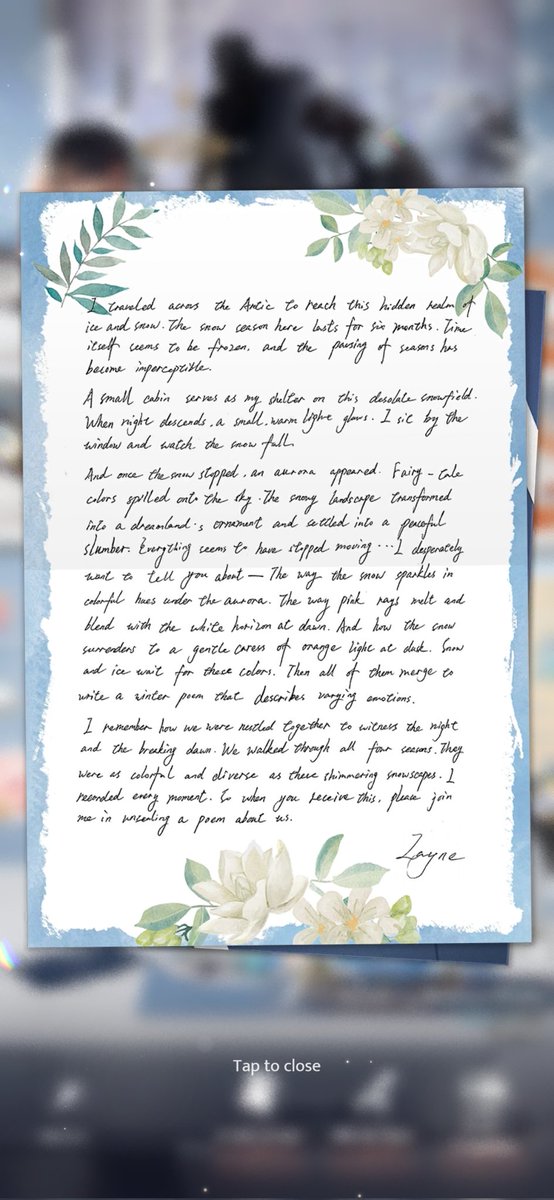 I traveled across the Arctic to reach this hidden realm of
ice and snow. The snow season here lasts for six months. Time
itself seems to be frozen, and the passing of seasons has
become imperceptible.
A small cabin serves as my shelter on this desolate snowfield.
When night descends, a small, warm light glows. I sit by the
window and watch the snow fall.
And once the snow stopped, an aurora appeared. Fairy-tale
colors spilled onto the sky. The snowy landscape transformed
into a dreamland's ornament and settled into a peaceful
slumber. Everything seems to have stopped moving... I desperately
want to tell you about— The way the snow sparkles in
colorful hues under the aurora. The way pink rays melt and
blend with the white horizon at dawn. And how the snow
surrenders to a gentle caress of orange light at dusk. Snow
and ice wait for these colors. Then all of them merge to
write a winter poem that describes varying emotions.
I remember how we were nestled together to witness the night
and the breaking dawn. We walked through all four seasons. They
were as colorful and diverse as these shimmering snowscapes. I
recorded every moment. So when you receive this, please join
me in unsealing a poem about us.
Zayne
Tap to close